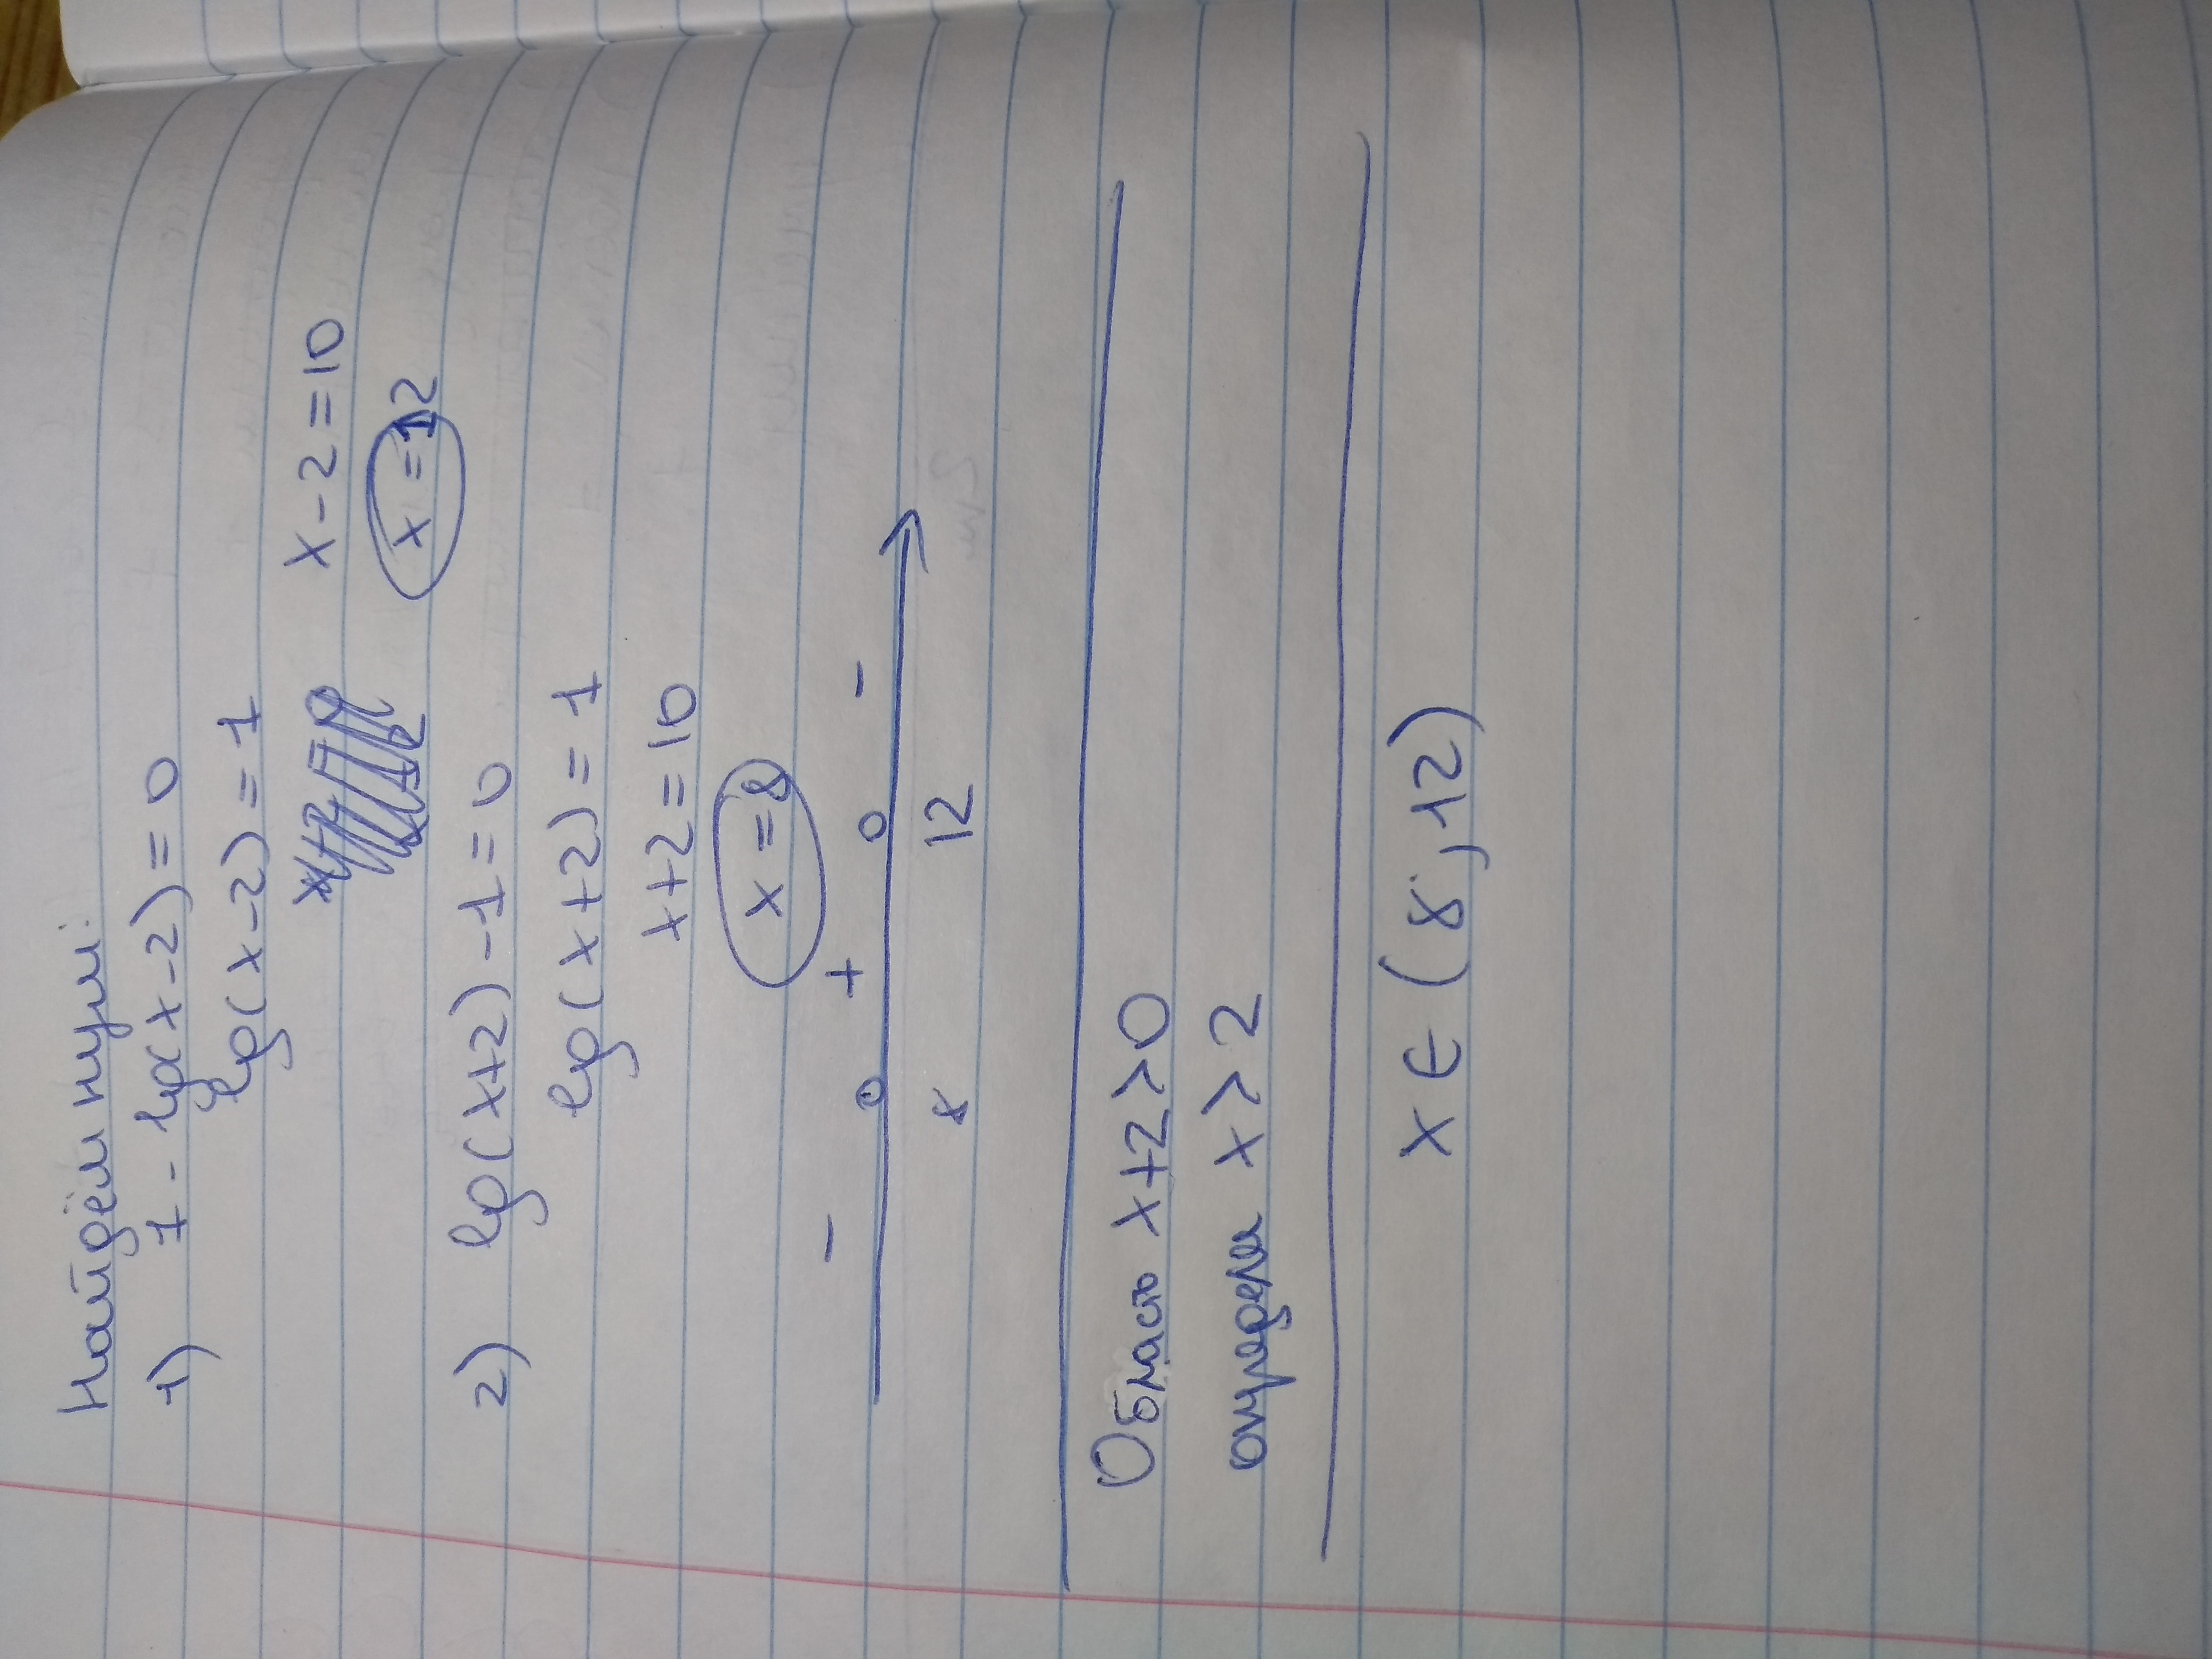 Найдём нули:
1) 1 - lg(x-2)=0
lg(x-2)=1
x-2=10
x=12
2) lg(x+2)-1=0
lg(x+2)=1
x+2=10
x=8
- + -
8 12
Область x+2>0
определ x>2
x ∈ (8; 12)